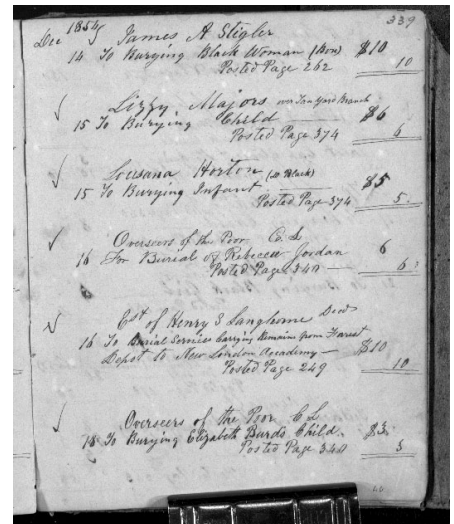 339
Dec 1854
James A Stigler
14 To Burying Black Woman (Box) $10
Posted Page 262 10
Lizzy Majors over Tanyard Branch
15 To Burying Child $6
Posted Page 374 6
Lousana Horton (Black)
15 To Burying Infant $5
Posted Page 374 5.
Overseers of the Poor C. L.
16 For Burial of Rebecca Jordan 6
Posted Page 340 6
Est of Henry S Langhorne Decd
16 To Burial Services Carrying Remains from Forest
Depot to New London Academy — $10
Posted Page 249 10
Overseers of the Poor C L
18 To Burying Elizabeth Burds Child. $3.
Posted Page 340 3